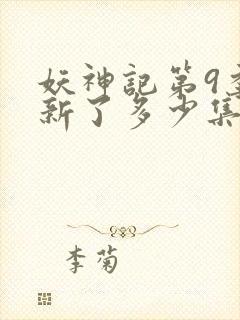 妖神記第9
新了多少集
李菊